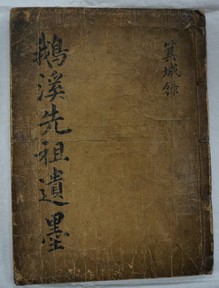 鵝溪先祖遺墨
箕城錄